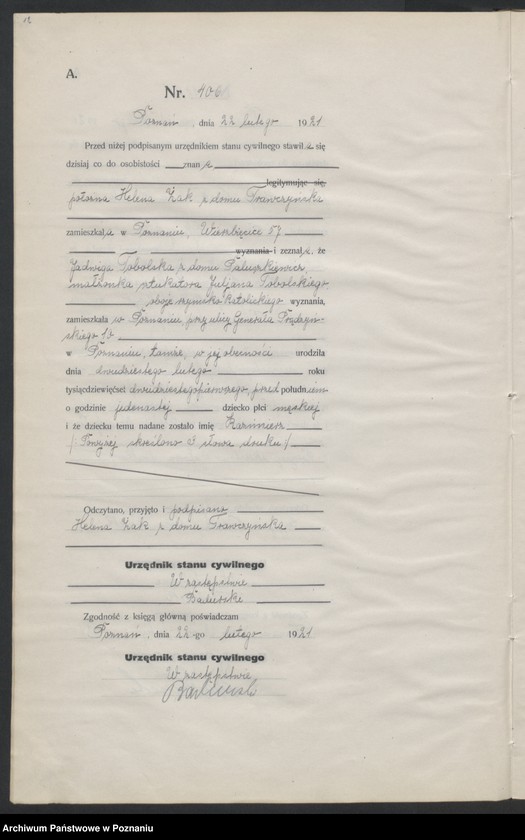 12
A.
Nr. 406
Poznań, dnia 22 lutego 1921
Przed niżej podpisanym urzędnikiem stanu cywilnego stawiła się
dzisiaj co do osobistości znana
legitymując się,
położna Helena Żak z domu Frawczyńska
zamieszkała w Poznaniu, Wierzbięcice 57
wyznania i zeznała, że
Jadwiga Sobolska z domu Paluszkiewicz,
małżonka sztukatora Juljana Sobolskiego,
oboje rzymsko katolickiego wyznania,
zamieszkała w Poznaniu, przy ulicy Generała Prądzyń-
skiego
w Poznaniu, tamże, w jej obecności urodziła
dnia dwudziestego lutego roku
tysiącdziewięćset dwudziestegopierwszego, przed południem
o godzinie jedenastej dziecko płci męskiej
i że dziecku temu nadane zostało imię Kazimierz
/ Powyżej skreślono 3 słowa druku /
Odczytano, przyjęto i podpisano
Helena Żak z domu Frawczyńska
Urzędnik stanu cywilnego
W zastępstwie
Zgodność z księgą główną poświadczam
Poznań, dnia 22-go lutego 1921
Urzędnik stanu cywilnego
W zastępstwie
Archiwum Państwowe w Poznaniu